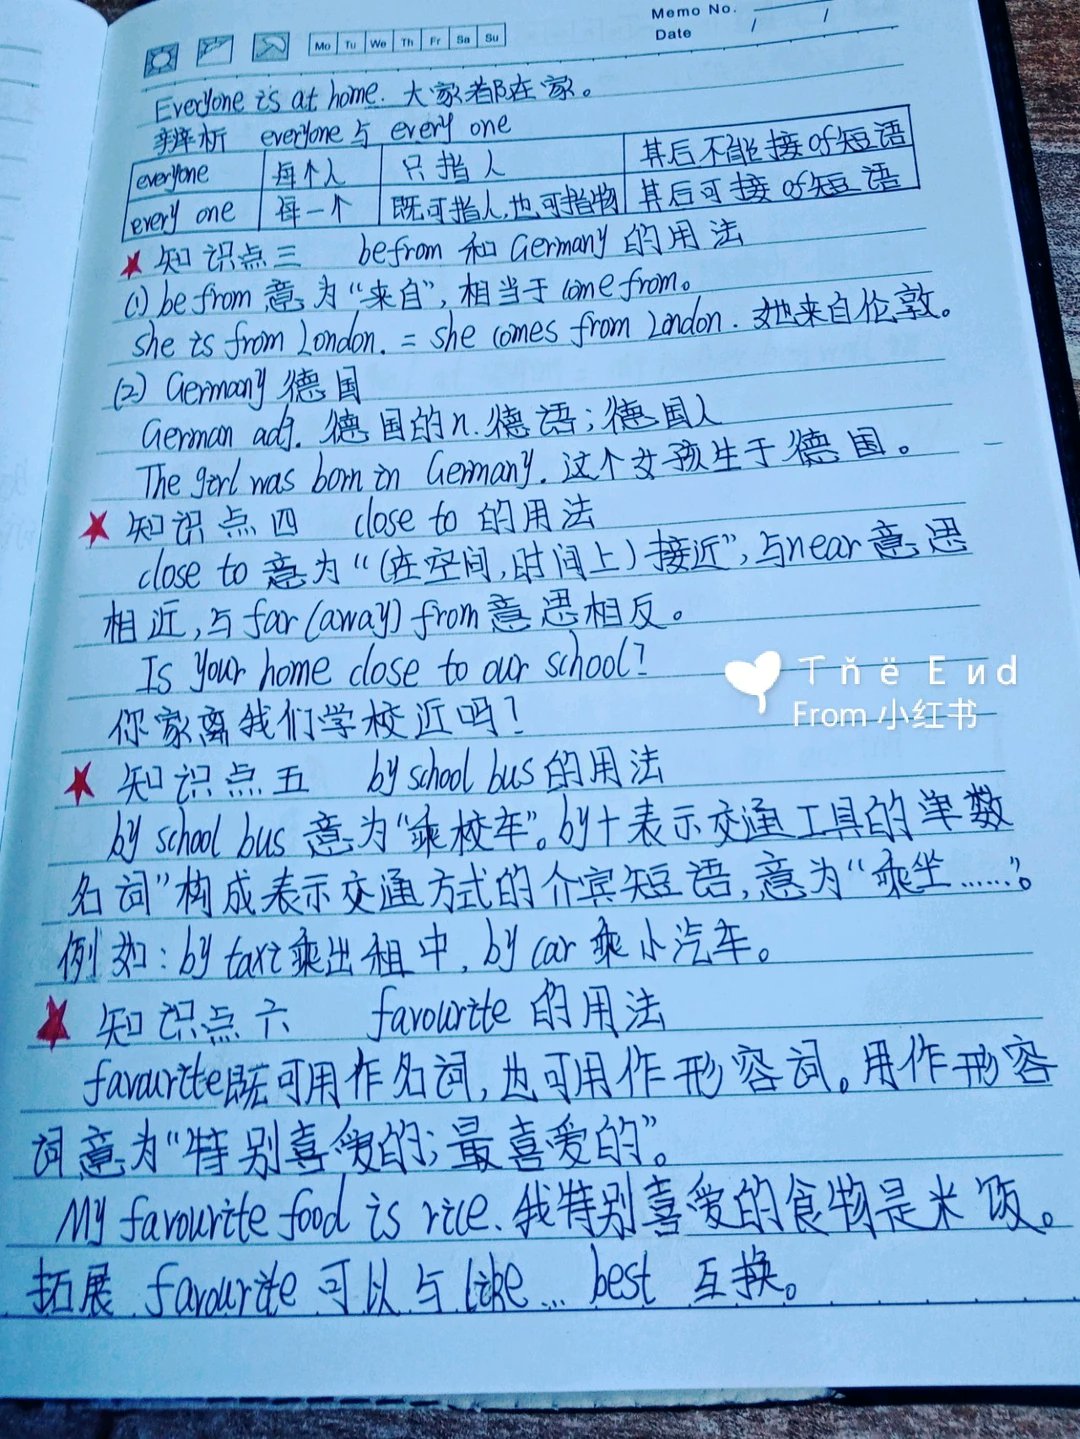 Memo No.
Date / /
Mo Tu We Th Fr Sa Su
Everyone is at home. 大家都在家。
辨析 everyone与 every one
everyone 每个人 只指人 其后不能接of短语
every one 每一个 既可指人,也可指物 其后可接of短语
★ 知识点三 be from 和 Germany 的用法
(1) be from 意为“来自”, 相当于 come from。
she is from London. = she comes from London. 她来自伦敦。
(2) Germany 德国
German adj. 德国的 n. 德语; 德国人
The girl was born in Germany. 这个女孩生于德国。
★ 知识点四 close to 的用法
close to 意为“(在空间,时间上)接近”, 与near意思
相近, 与 far (away) from 意思相反。
Is your home close to our school?
你家离我们学校近吗?
★ 知识点五 by school bus 的用法
by school bus 意为“乘校车”。by+表示交通工具的单数
名词”构成表示交通方式的介宾短语, 意为“乘坐……”。
例如: by taxi 乘出租中, by car 乘小汽车。
★ 知识点六 favourite 的用法
favourite既可用作名词, 也可用作形容词。用作形容
词意为“特别喜爱的; 最喜爱的”。
My favourite food is rice. 我特别喜爱的食物是米饭。
拓展 favourite 可以与 like … best 互换。
Tňë Eиd
From 小红书